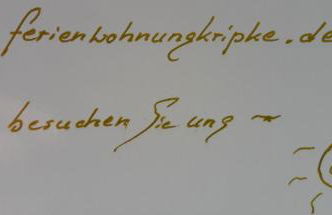 ferienwohnungkripke.de
besuchen Sie uns ~